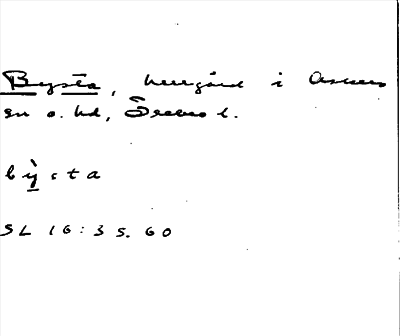 Bysta, herrgård i Askers
sn o. hd, Örebro l.
bỳsta
SL 16:35.60